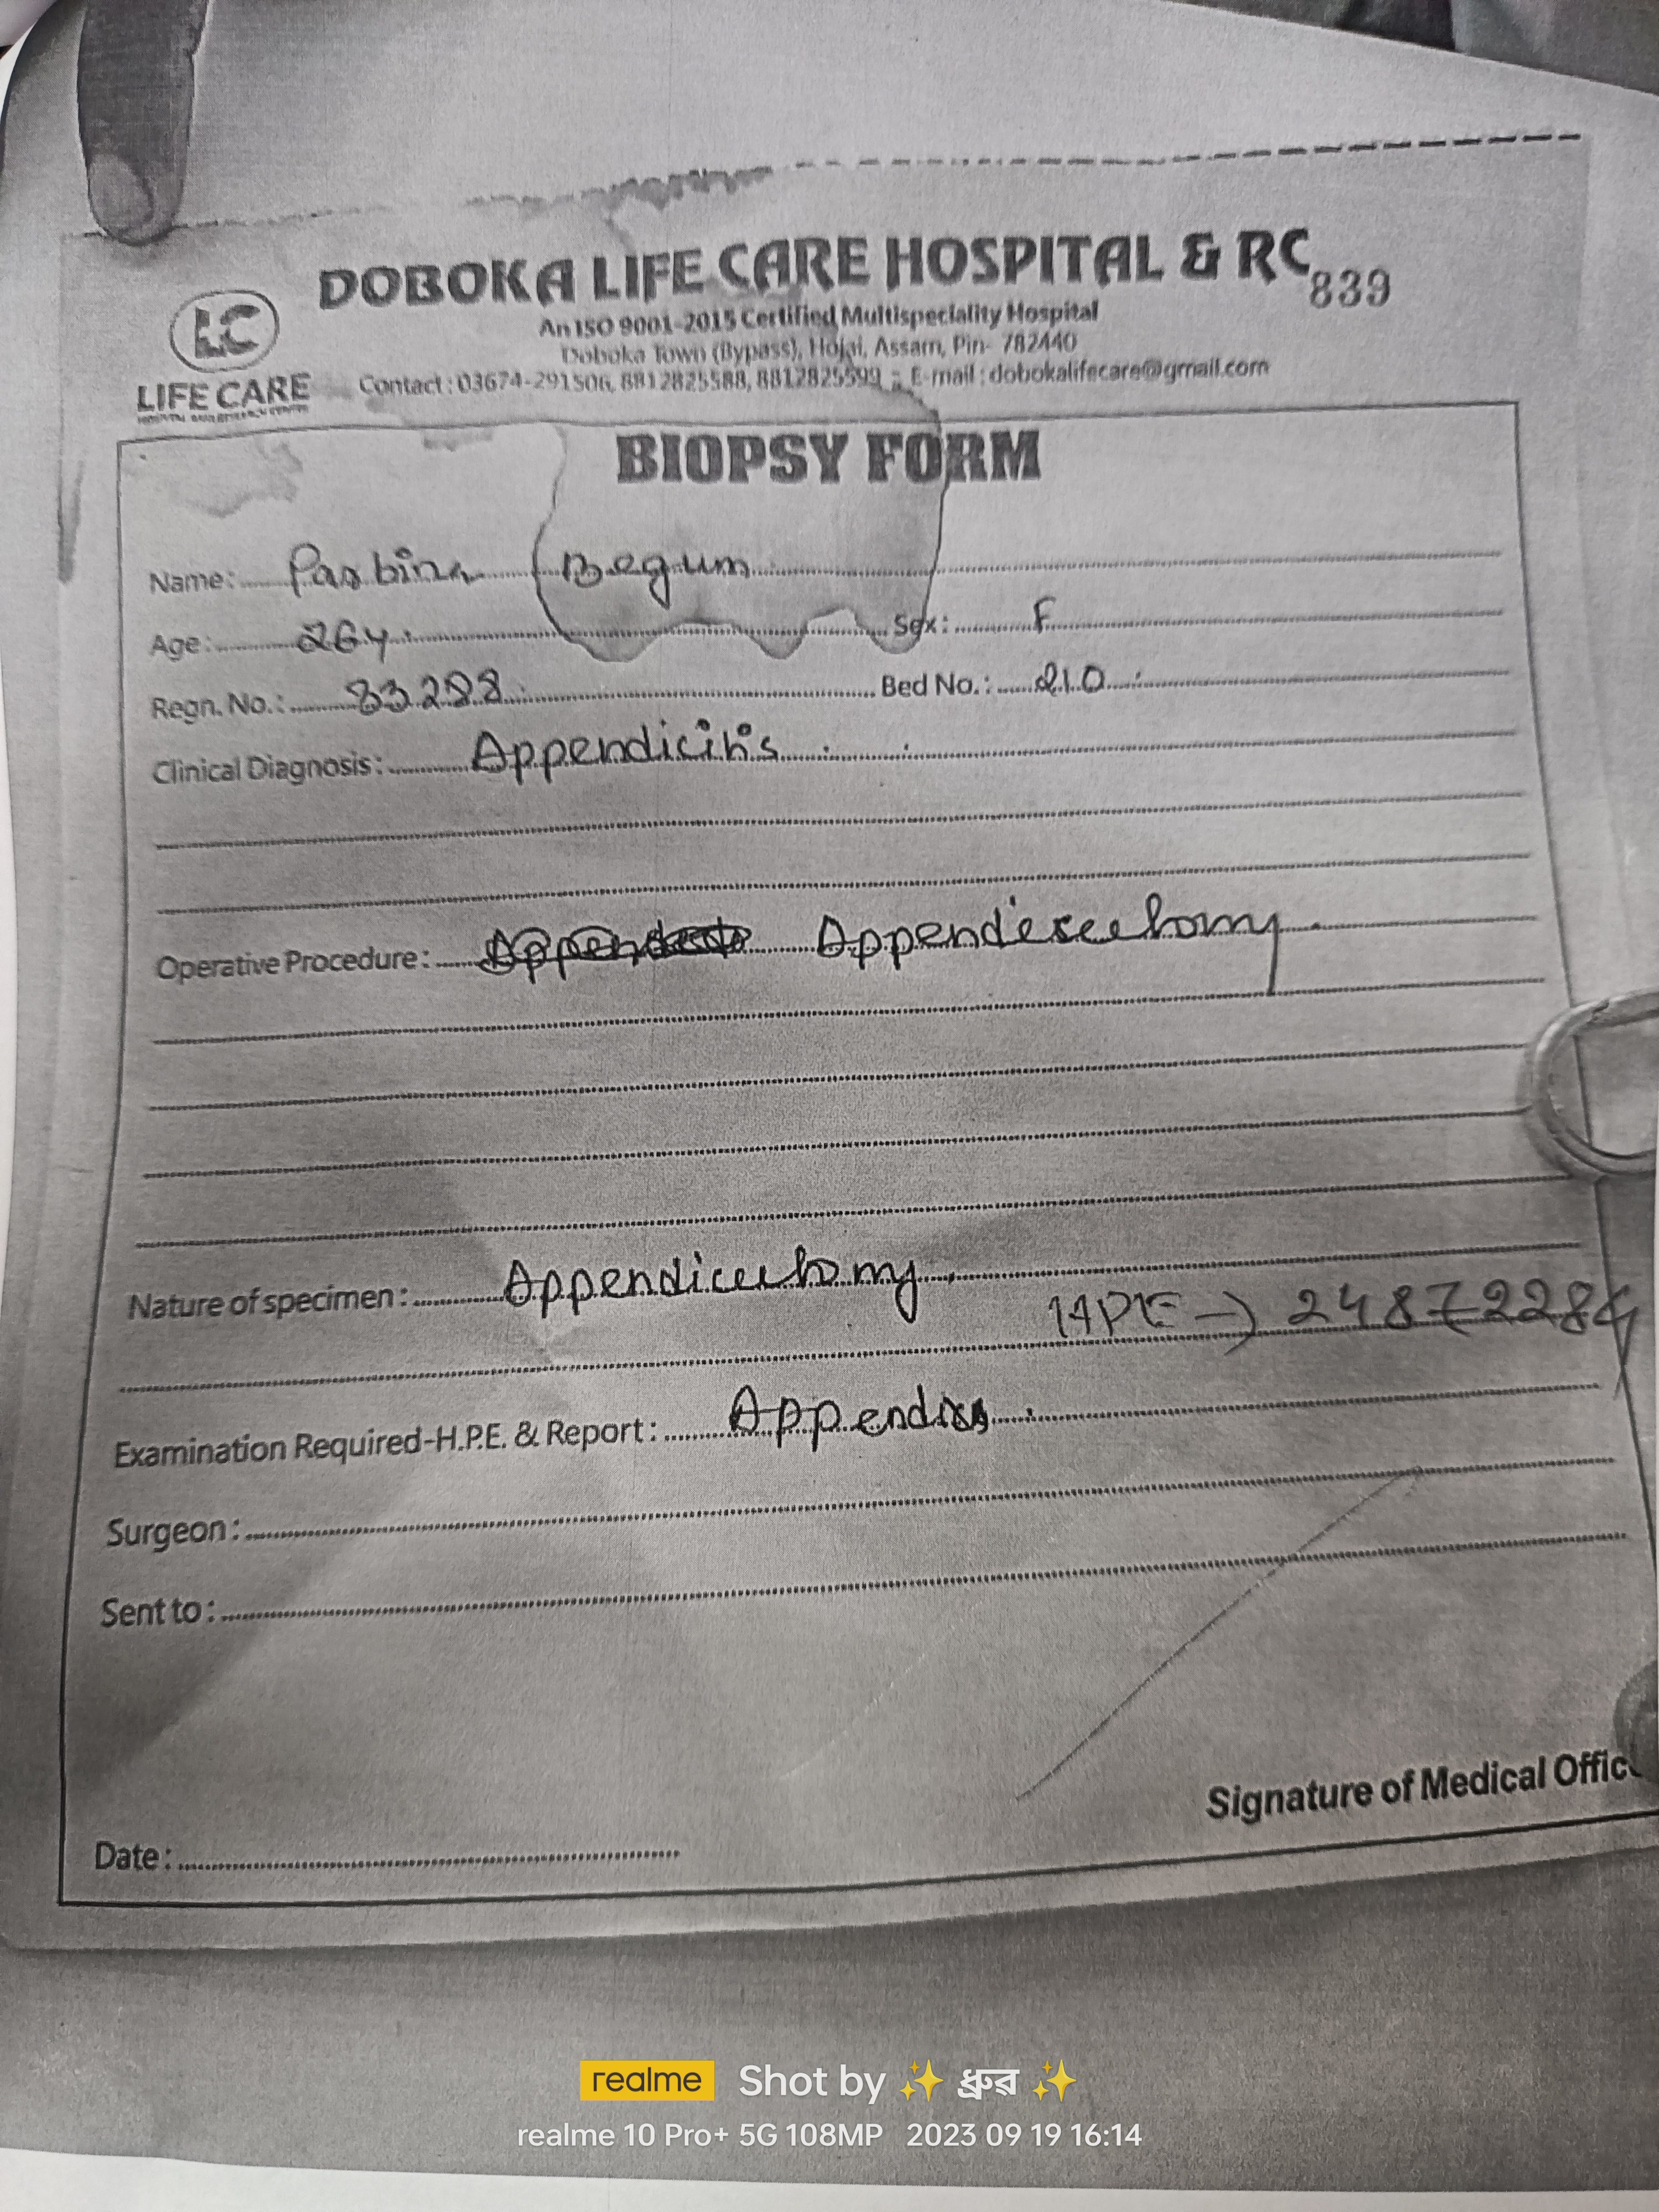 DOBOKA LIFE CARE HOSPITAL & RC
839
LC
LIFE CARE
An ISO 9001-2015 Certified Multispeciality Hospital
Doboka Town (Bypass), Hojai, Assam, Pin- 782440
Contact : 03674-291506, 8812825588, 8812825599 ; E-mail : dobokalifecare@gmail.com
BIOPSY FORM
Name: Parbina Begum
Age: 26y. Sex: F
Regn. No.: 83288 Bed No.: 210
Clinical Diagnosis: Appendicitis
Operative Procedure: Appendicectomy
Nature of specimen: Appendicectomy
HPE → 24872284
Examination Required-H.P.E. & Report: Appendix
Surgeon:
Sent to:
Signature of Medical Offic
Date:
realme Shot by ✨ ধ্ৰুৱ ✨
realme 10 Pro+ 5G 108MP 2023 09 19 16:14